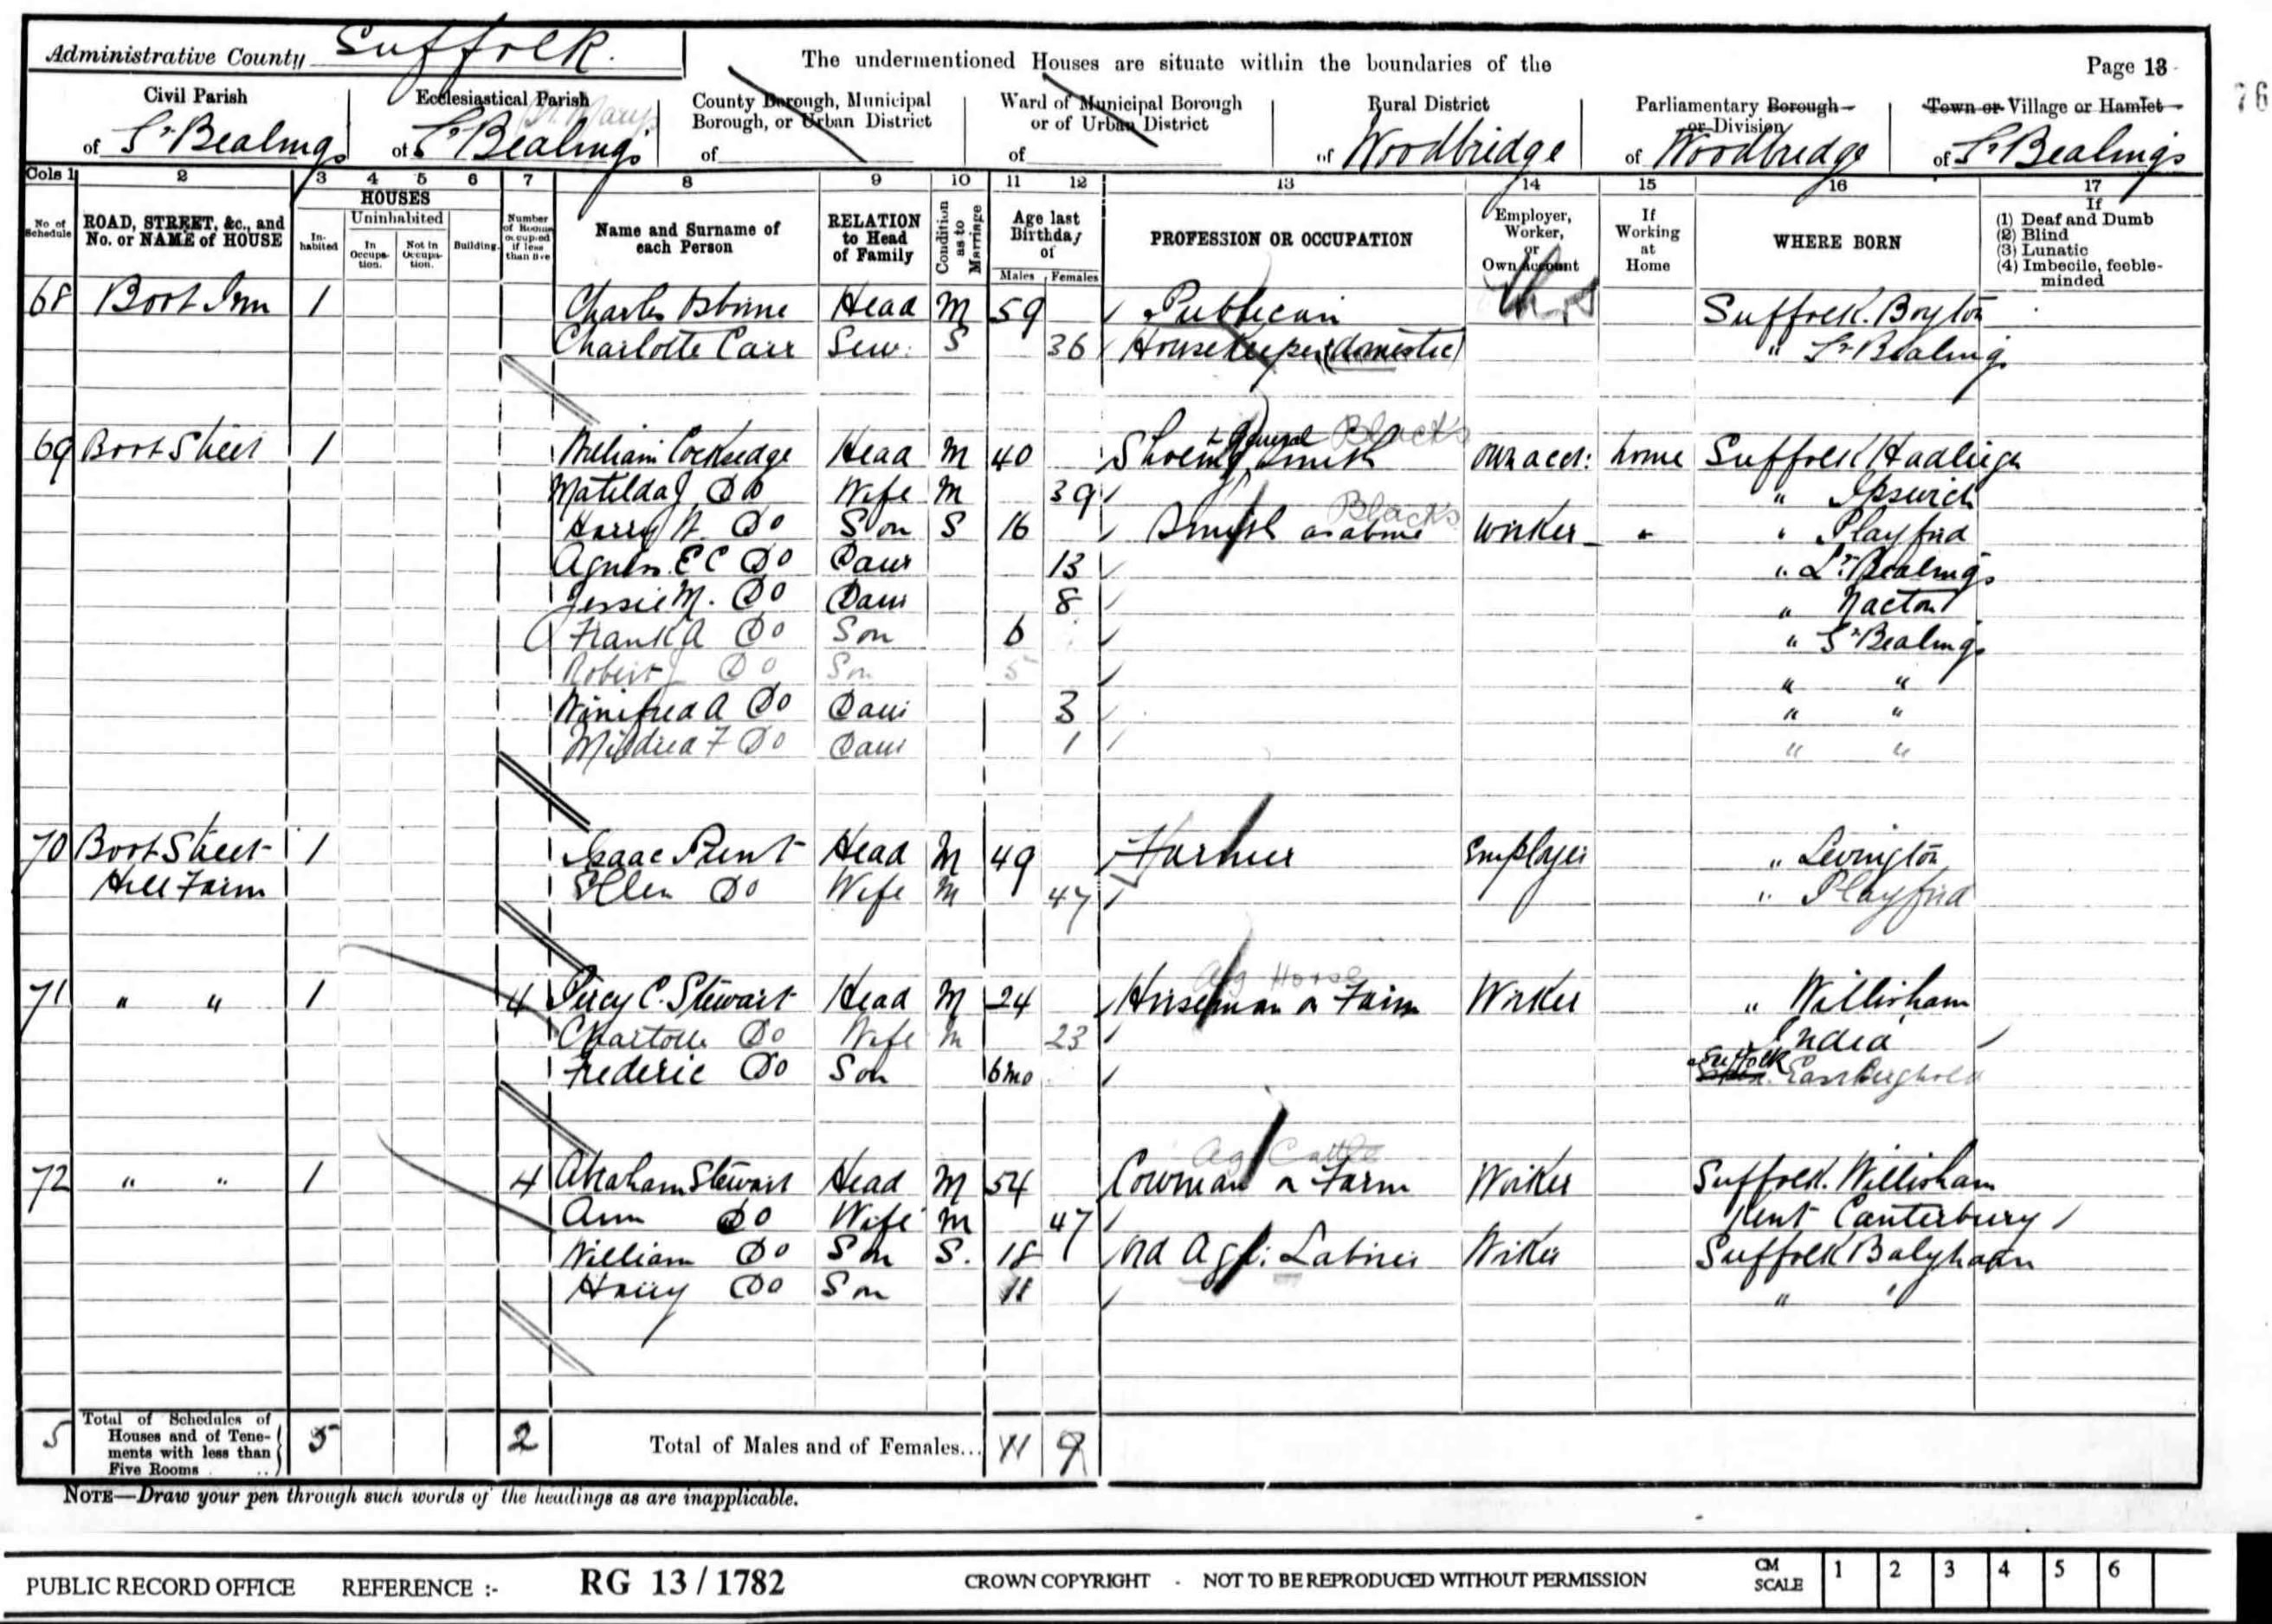 Administrative County Suffolk.
The undermentioned Houses are situate within the boundaries of the
Page 13
76
Civil Parish of Lr Bealings
Ecclesiastical Parish of Lr Bealings
St Mary
County Borough, Municipal Borough, or Urban District of
Ward of Municipal Borough or of Urban District of
Rural District of Woodbridge
Parliamentary Borough or Division of Woodbridge
Town or Village or Hamlet of Lr Bealings
Cols 1 2 3 4 5 6 7 8 9 10 11 12 13 14 15 16 17
No of Schedule
ROAD, STREET, &c., and No. or NAME of HOUSE
HOUSES
Inhabited
Uninhabited
In Occupation.
Not in Occupation.
Building.
Number of Rooms occupied if less than five
Name and Surname of each Person
RELATION to Head of Family
Condition as to Marriage
Age last Birthday of
Males Females
PROFESSION OR OCCUPATION
Employer, Worker, or Own Account
If Working at Home
WHERE BORN
If
(1) Deaf and Dumb
(2) Blind
(3) Lunatic
(4) Imbecile, feeble-minded
68 Boot Inn 1 Charles Head M 59 Publican Suffolk. Boyton
Charlotte Carr Serv. S 36 Housekeeper (domestic) " Lr Bealings
69 Boot Street 1 William Head M 40 Shoeing & General Smith Blacks own acct: home Suffolk Hadleigh
Matilda J Do Wife M 39 " Ipswich
Harry W. Do Son S 16 Smith as above Blacks worker " " Playford
Agnes E C Do Daur 13 " Lr Bealings
Jessie M. Do Daur 8 " Nacton
Frank A Do Son 6 " Lr Bealings
Robert J Do Son 5 " "
Winifred A Do Daur 3 " "
Mildred F Do Daur 1 " "
70 Boot Street 1 Isaac Head M 49 Farmer Employer " Levington
Hill Farm Ellen Do Wife M 47 " Playford
71 " " 1 4 Percy C. Stewart Head M 24 Horseman on Farm Ag Horse Worker " Willisham
Charlotte Do Wife M 23 India
Frederic Do Son 6mo Suffolk East Bergholt
72 " " 1 4 Abraham Stewart Head M 54 Cowman on Farm Ag Cattle Worker Suffolk. Willisham
Ann Do Wife M 47 Kent Canterbury
William Do Son S. 18 Ord Agl: Labourer Worker Suffolk
Harry Do Son 11 " "
5 Total of Schedules of Houses and of Tenements with less than Five Rooms .. 5 2 Total of Males and of Females... 11 9
NOTE—Draw your pen through such words of the headings as are inapplicable.
PUBLIC RECORD OFFICE REFERENCE :- RG 13 / 1782 CROWN COPYRIGHT - NOT TO BE REPRODUCED WITHOUT PERMISSION CM SCALE 1 2 3 4 5 6